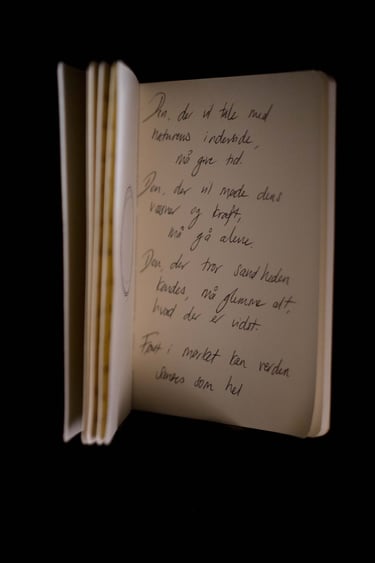 Den, der vil tale med
naturens inderside,
må give tid.
Den, der vil møde dens
væsner og kraft,
må gå alene.
Den, der tror sandheden
kendes, må glemme alt,
hvad der er vidst.
Først i mørket kan verden
sanses som hel